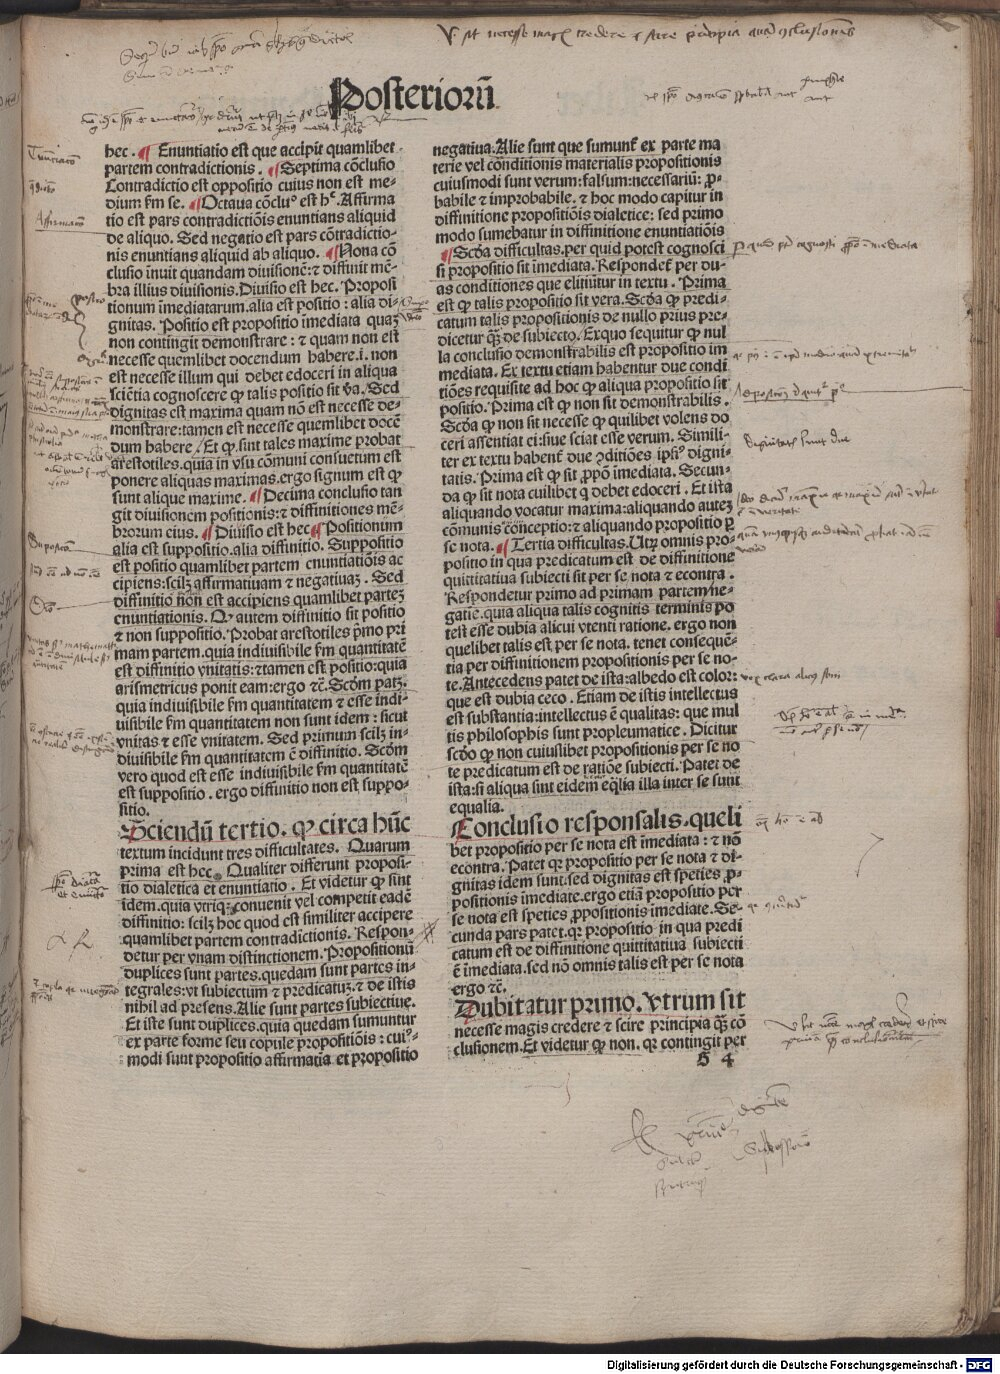 Posteriorũ
hec. ¶ Enuntiatio est que accipit quamlibet
partem contradictionis. ¶ Septima cõclusio
Contradictio est oppositio cuius non est me-
dium ẜm se. ¶ Octaua cõcluº est hᶜ. Affirma
tio est pars contradictiõis enuntians aliquid
de aliquo. Sed negatio est pars cõtradictio-
nis enuntians aliquid ab aliquo. ¶ Nona cõ
clusio inuit quandam diuisionẽ: ⁊ diffinit mẽ-
bra illius diuisionis. Diuisio est hec. Propo­si
tionum ĩmediatarum. alia est positio: alia di-
gnitas. Positio est propositio ĩmediata quaʒ
non contingit demonstrare: ⁊ quam non est
necesse quemlibet docendum habere. i. non
est necesse illum qui debet edoceri in aliqua
sciẽtia cognoscere ꝙ talis positio sit ṽa. Sed
dignitas est maxima quam nõ est necesse de-
monstrare: tamen est necesse quemlibet docẽ
dum habere / Et ꝙ sint tales maxime probat
arestotiles. quia in vsu cõmuni consuetum est
ponere aliquas maximas. ergo signum est ꝙ
sunt alique maxime. ¶ Decima conclusio tan
git diuisionem positionis: ⁊ diffinitiones mẽ-
brorum eius. ¶ Diuisio est hec ¶ Positionum
alia est suppositio. alia diffinitio. Suppositio
est positio quamlibet partem enuntiatiõis ac
cipiens: scilʒ affirmatiuam ⁊ negatiuaʒ. Sed
diffinitio non est accipiens quamlibet parteʒ
enuntiationis. Ꝙ autem diffinitio sit positio
⁊ non suppositio. Probat arestotiles p̃mo pri
mam partem. quia indiuisibile ẜm quantitatẽ
est diffinitio vnitatis: ⁊ tamen est positio: quia
arismetricus ponit eam: ergo ⁊c̃. Scd̃m patʒ.
quia indiuisibile ẜm quantitatem ⁊ esse indi-
uisibile ẜm quantitatem non sunt idem: sicut
vnitas ⁊ esse vnitatem. Sed primum scilʒ in-
diuisibile ẜm quantitatem ẽ diffinitio. Scd̃m
vero quod est esse indiuisibile ẜm quantitatẽ
est suppositio. ergo diffinitio non est suppo-
sitio.
Sciendũ tertio. ꝙ circa hũc
textum incidunt tres difficultates. Quarum
prima est hec. Qualiter differunt proposi-
tio dialetica et enuntiatio. Et videtur ꝙ sint
idem. quia vtriqʒ conuenit vel competit eadẽ
diffinitio: scilʒ hoc quod est similiter accipere
quamlibet partem contradictionis. Respon-
detur per vnam distinctionem. Propositionũ
duplices sunt partes. quedam sunt partes in-
tegrales: vt subiectum ⁊ predicatuʒ. ⁊ de istis
nihil ad presens. Alie sunt partes subiectiue.
Et iste sunt duplices. quia quedam sumuntur
ex parte forme seu copule propositiõis: cuiꝰ-
modi sunt propositio affirmatia et propositio
negatiua. Alie sunt que sumunt̃ ex parte ma
terie vel cõnditionis materialis propositionis
cuiusmodi sunt verum: falsum: necessariũ: ꝓ-
babile ⁊ improbabile. ⁊ hoc modo capitur in
diffinitione propositiõis dialetice: sed primo
modo sumebatur in diffinitione enuntiatiõis
¶ Scd̃a difficultas. per quid potest cognosci
si propositio sit ĩmediata. Respondet̃ per du-
as conditiones que elitiũtur in textu. Prima
est ꝙ talis propositio sit vera. Scd̃a ꝙ predi-
catum talis propositionis de nullo prius pre-
dicetur qʒ̃ de subiecto. Ex quo sequitur ꝙ nul
la conclusio demonstrabilis est propositio im
mediata. Ex textu etiam habentur due condi
tiões requisite ad hoc ꝙ aliqua propositio sit
positio. Prima est ꝙ non sit demonstrabilis.
Scd̃a ꝙ non sit necesse ꝙ quilibet volens do
ceri assentiat ei: siue sciat esse verum. Simili-
ter ex textu habent̃ due ꝯditiões ipsiꝰ digni-
tatis. Prima est ꝙ sit ꝓpõ imediata. Secun-
da ꝙ sit nota cuilibet q debet edoceri. Et ista
aliquando vocatur maxima: aliquando auteʒ
cõmunis conceptio: ⁊ aliquando propositio ꝑ
se nota. ¶ Tertia difficultas. Utʒ omnis pro
positio in qua predicatum est de diffinitione
quittitatiua subiecti sit per se nota ⁊ econtra.
Respondetur primo ad primam partem ne-
gatiẽ. quia aliqua talis cognitis terminis po
test esse dubia alicui vtenti ratione. ergo non
quelibet talis est per se nota. tenet consequẽ-
tia per diffinitionem propositionis per se no-
te. Antecedens patet de ista: albedo est color:
que est dubia ceco. Etiam de istis intellectus
est substantia: intellectus ẽ qualitas: que mul
tis philosophis sunt propleumatice. Dicitur
scd̃o ꝙ non cuiuslibet propositionis per se no
te predicatum est de ratiõe subiecti. Patet de
ista: si aliqua sint eidem eq̃lia illa inter se sunt
equalia.
Conclusio responsalis. queli
bet propositio per se nota est imediata: ⁊ nõ
econtra. Patet qr propositio per se nota ⁊ di-
gnitas idem sunt: sed dignitas est speties ꝓ-
positionis imediate. ergo etiã propositio per
se nota est speties ꝓpositionis imediate. Se-
cunda pars patet. qr propositio in qua predi
catum est de diffinitione quittitatiua subiecti
ẽ imediata. sed nõ omnis talis est per se nota
ergo ⁊c̃.
Dubitatur primo. vtrum sit
necesse magis credere ⁊ scire principia qʒ̃ cõ
clusionem. Et videtur ꝙ non. qr contingit per
G 4
Digitalisierung gefördert durch die Deutsche Forschungsgemeinschaft - DFG